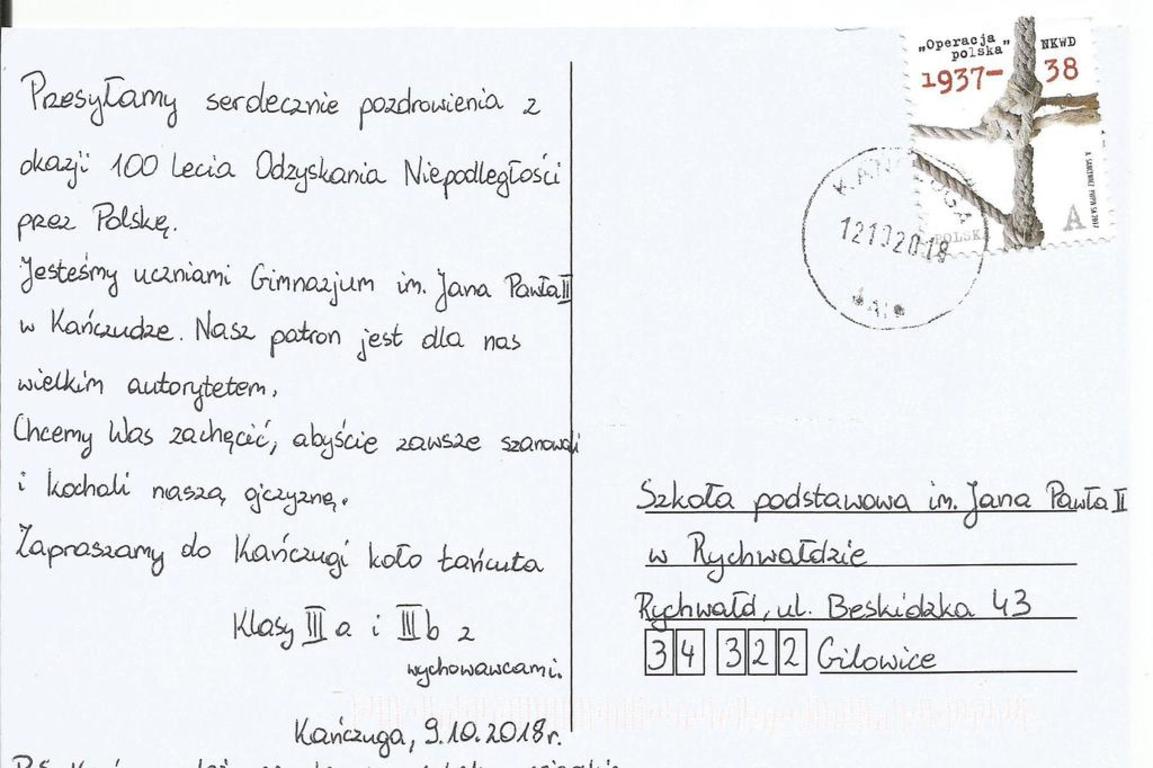 Przesyłamy serdecznie pozdrowienia z
okazji 100 lecia Odzyskania Niepodległości
przez Polskę.
Jesteśmy uczniami Gimnazjum im. Jana Pawła II
w Kańczudze. Nasz patron jest dla nas
wielkim autorytetem.
Chcemy Was zachęcić, abyście zawsze szanowali
i kochali naszą ojczyznę.
Zapraszamy do Kańczugi koło Łańcuta
Klasy III a i III b z
wychowawcami.
Kańczuga, 9.10.2018r.
„Operacja polska” NKWD
1937-38
A
POLSKA
12102018
Szkoła podstawowa im. Jana Pawła II
w Rychwałdzie
Rychwałd, ul. Beskidzka 43
34 322 Gilowice